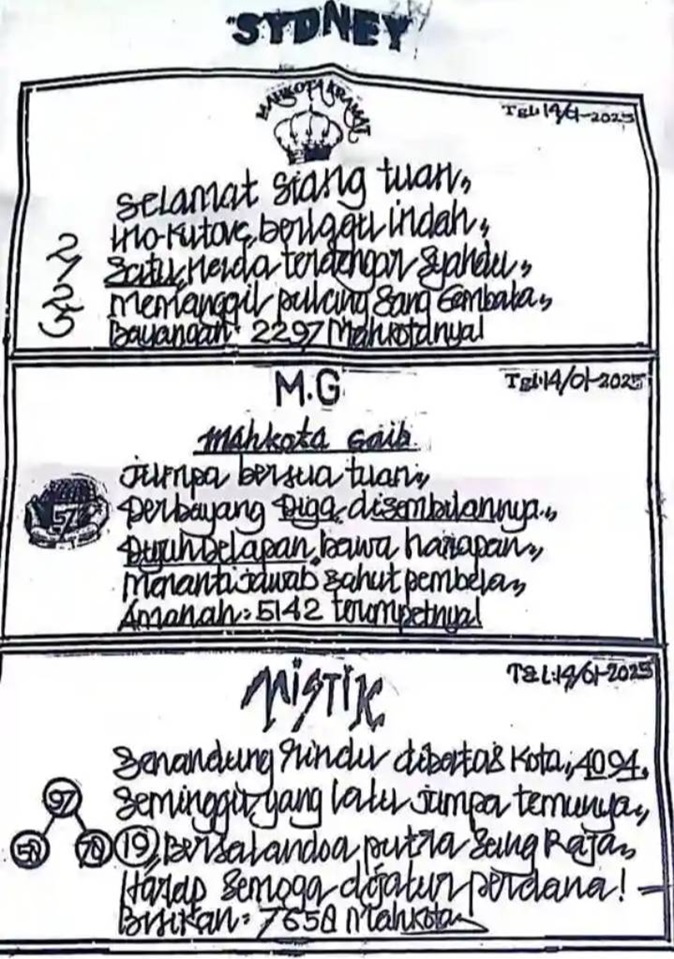 "SYDNEY"
MAHKOTA KRAMAT
TGL: 14/01-2025
Selamat Siang tuan,,
berlagu indah,,
2
1
Satu, Nerda terdengar Syahdu,,
2
Memanggil pulang Sang Gembala,,
5
Bayangan: 2297 Mahkotanya!
M.G
TGL:14/01-2025
Mahkota Gaib
Jumpa bersua tuan,,
57
Perbayang Diga, disembilannya,,
Dujuh Delapan, bawa harapan,,
Menanti jawab Sahut pembela,,
Amanah: 5142 terumpetnya!
MISTIK
TGL:14/01-2025
Senandung Rindu dibatas Kota, 4094,
97
Seminggu yang lalu jumpa temunya,,
50 70 (19), putra Sang Raja,,
Harap Semoga dijatur perdana! -
Bisikan: 7658 Mahkota